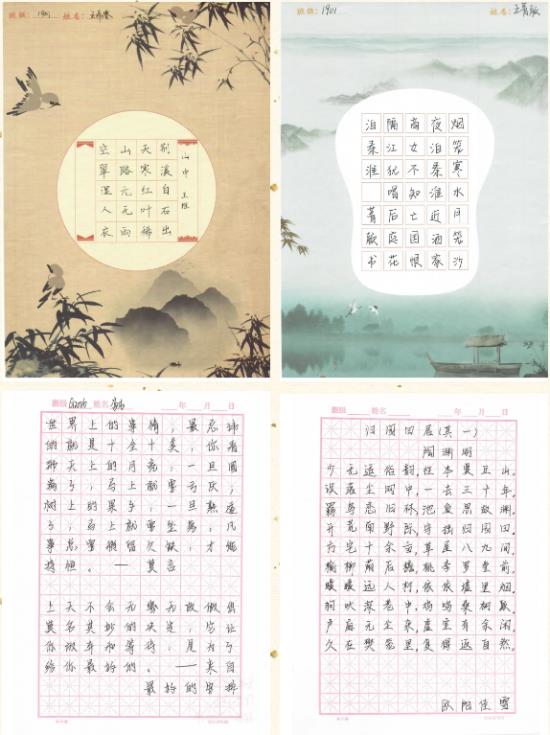 班级: 1901 姓名:
山中 王维
荆溪白石出
天寒红叶稀
山路元无雨
空翠湿人衣
班级: 1901 姓名: 王菁敏
烟笼寒水月笼沙
夜泊秦淮近酒家
商女不知亡国恨
隔江犹唱后庭花
泊秦淮 菁敏书
班级 姓名 年 月 日
世界上的事情,最忌讳
的就是十全十美,你看
那天上的月亮,一旦圆
满了,马上就要亏厌;
树上的果子,一旦熟透
了,马上就要坠落。凡
事总要稍留欠缺,才能
持恒。 ——莫言
上天不会无缘无故做出
莫名其妙的决定,它让
你放弃和等待,是为了
给你最好的。 ——来自
最好的安排
班级 姓名 年 月 日
归园田居(其一)
陶渊明
少无适俗韵,性本爱丘山。
误落尘网中,一去三十年。
羁鸟恋旧林,池鱼思故渊。
开荒南野际,守拙归园田。
方宅十余亩,草屋八九间。
榆柳荫后檐,桃李罗堂前。
暧暧远人村,依依墟里烟。
狗吠深巷中,鸡鸣桑树颠。
户庭无尘杂,虚室有余闲。
久在樊笼里,复得返自然。
欧阳佳雪